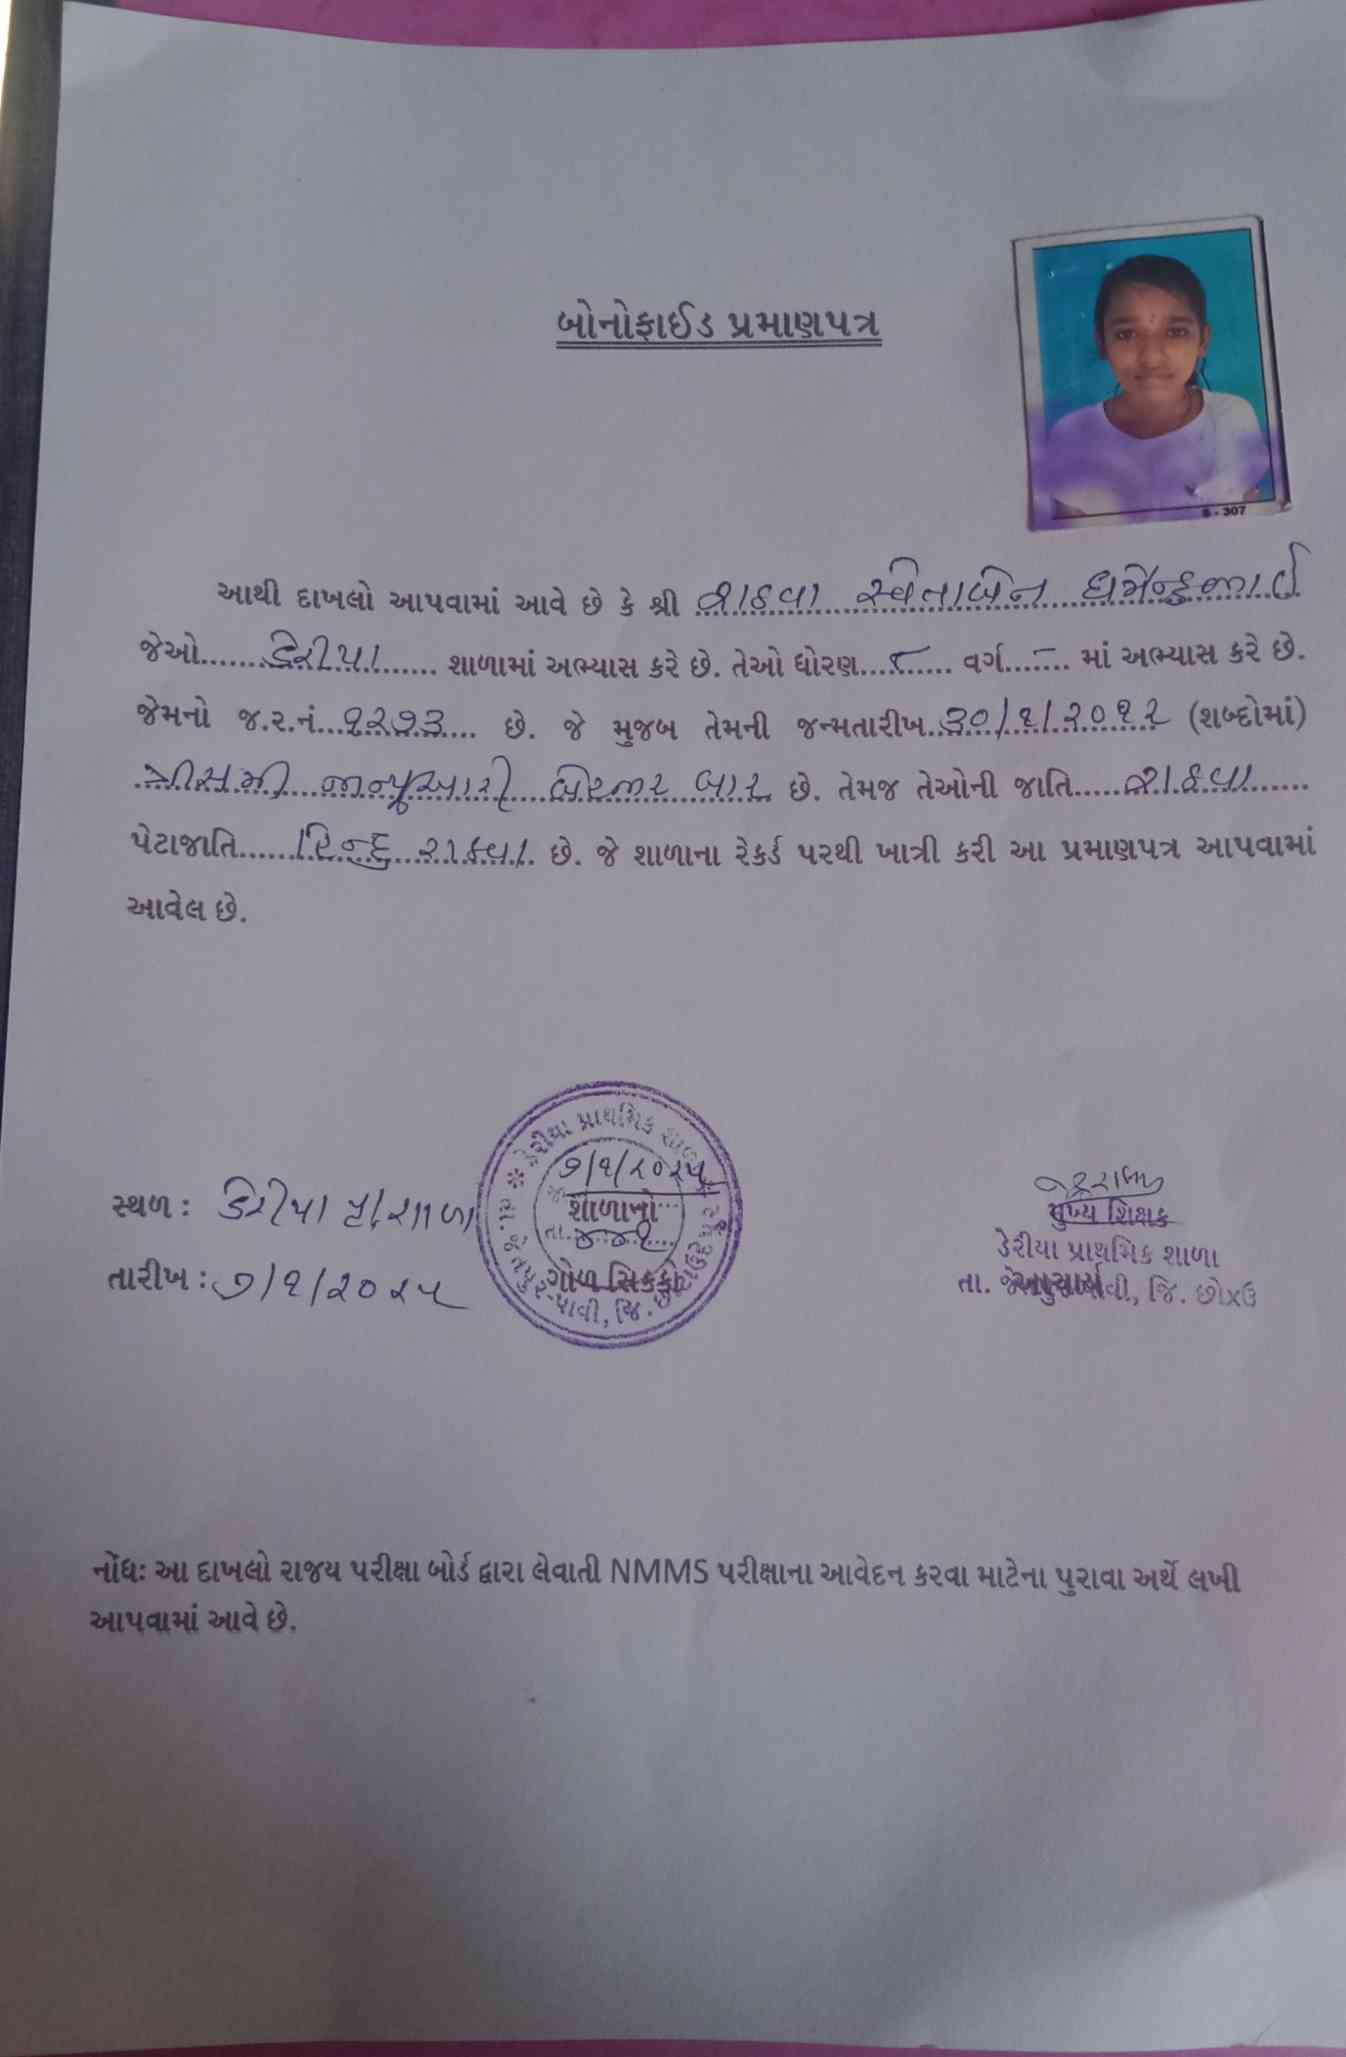 બોનોફાઈડ પ્રમાણપત્ર
S - 307
આથી દાખલો આપવામાં આવે છે કે શ્રી રાઠવા સ્વેતાબેન ધર્મેન્દ્રભાઈ
જેઓ.......ડેરીયા...... શાળામાં અભ્યાસ કરે છે. તેઓ ધોરણ....૮..... વર્ગ...-... માં અભ્યાસ કરે છે.
જેમનો જ.ર.નં...૧૨૭૩.... છે. જે મુજબ તેમની જન્મતારીખ..૩૦/૧/૨૦૧૨ (શબ્દોમાં)
ત્રીસમી જાન્યુઆરી બેહજાર બાર છે. તેમજ તેઓની જાતિ.....રાઠવા.......
પેટાજાતિ.....હિન્દુ રાઠવા છે. જે શાળાના રેકર્ડ પરથી ખાત્રી કરી આ પ્રમાણપત્ર આપવામાં
આવેલ છે.
ડેરીયા પ્રાથમિક શાળા
૭/૧/૨૦૨૫
શાળાનો
તા.
ગોળ સિક્કો
તા. જેતપુર-પાવી, જિ. છોટાઉદેપુર
સ્થળ : ડેરીયા પ્રા. શાળા
તારીખ : ૭/૧/૨૦૨૫
મુખ્ય શિક્ષક
ડેરીયા પ્રાથમિક શાળા
આચાર્ય
નોંધ: આ દાખલો રાજય પરીક્ષા બોર્ડ દ્વારા લેવાતી NMMS પરીક્ષાના આવેદન કરવા માટેના પુરાવા અર્થે લખી
આપવામાં આવે છે.